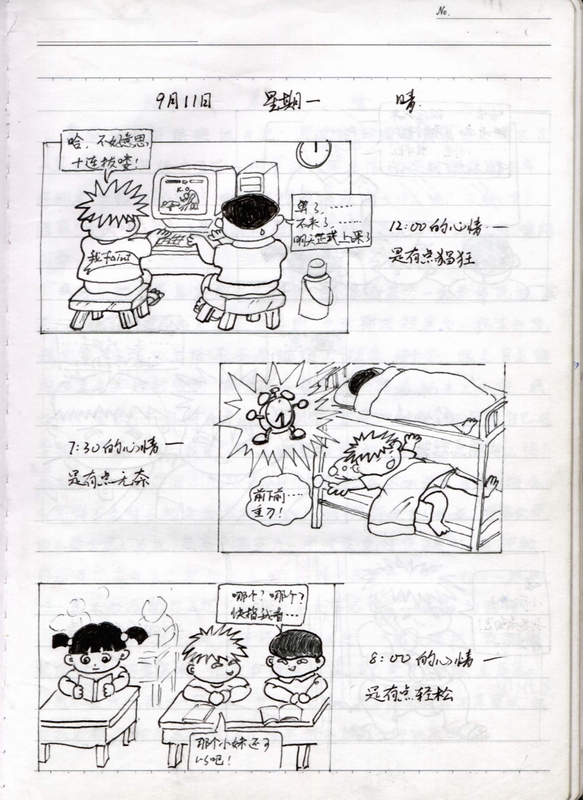 No.
9月11日 星期一 晴
哈，不好意思
十连拔喽！
我faint
K.O
算了，……
不来了，……
明天正式上课了
12:00的心情一
是有点猖狂
7:30的心情一
是有点无奈
前下前……
重刀！
哪个？哪个？
快指我看…
8:00的心情一
是有点轻松
那个小妹还可
以吧！